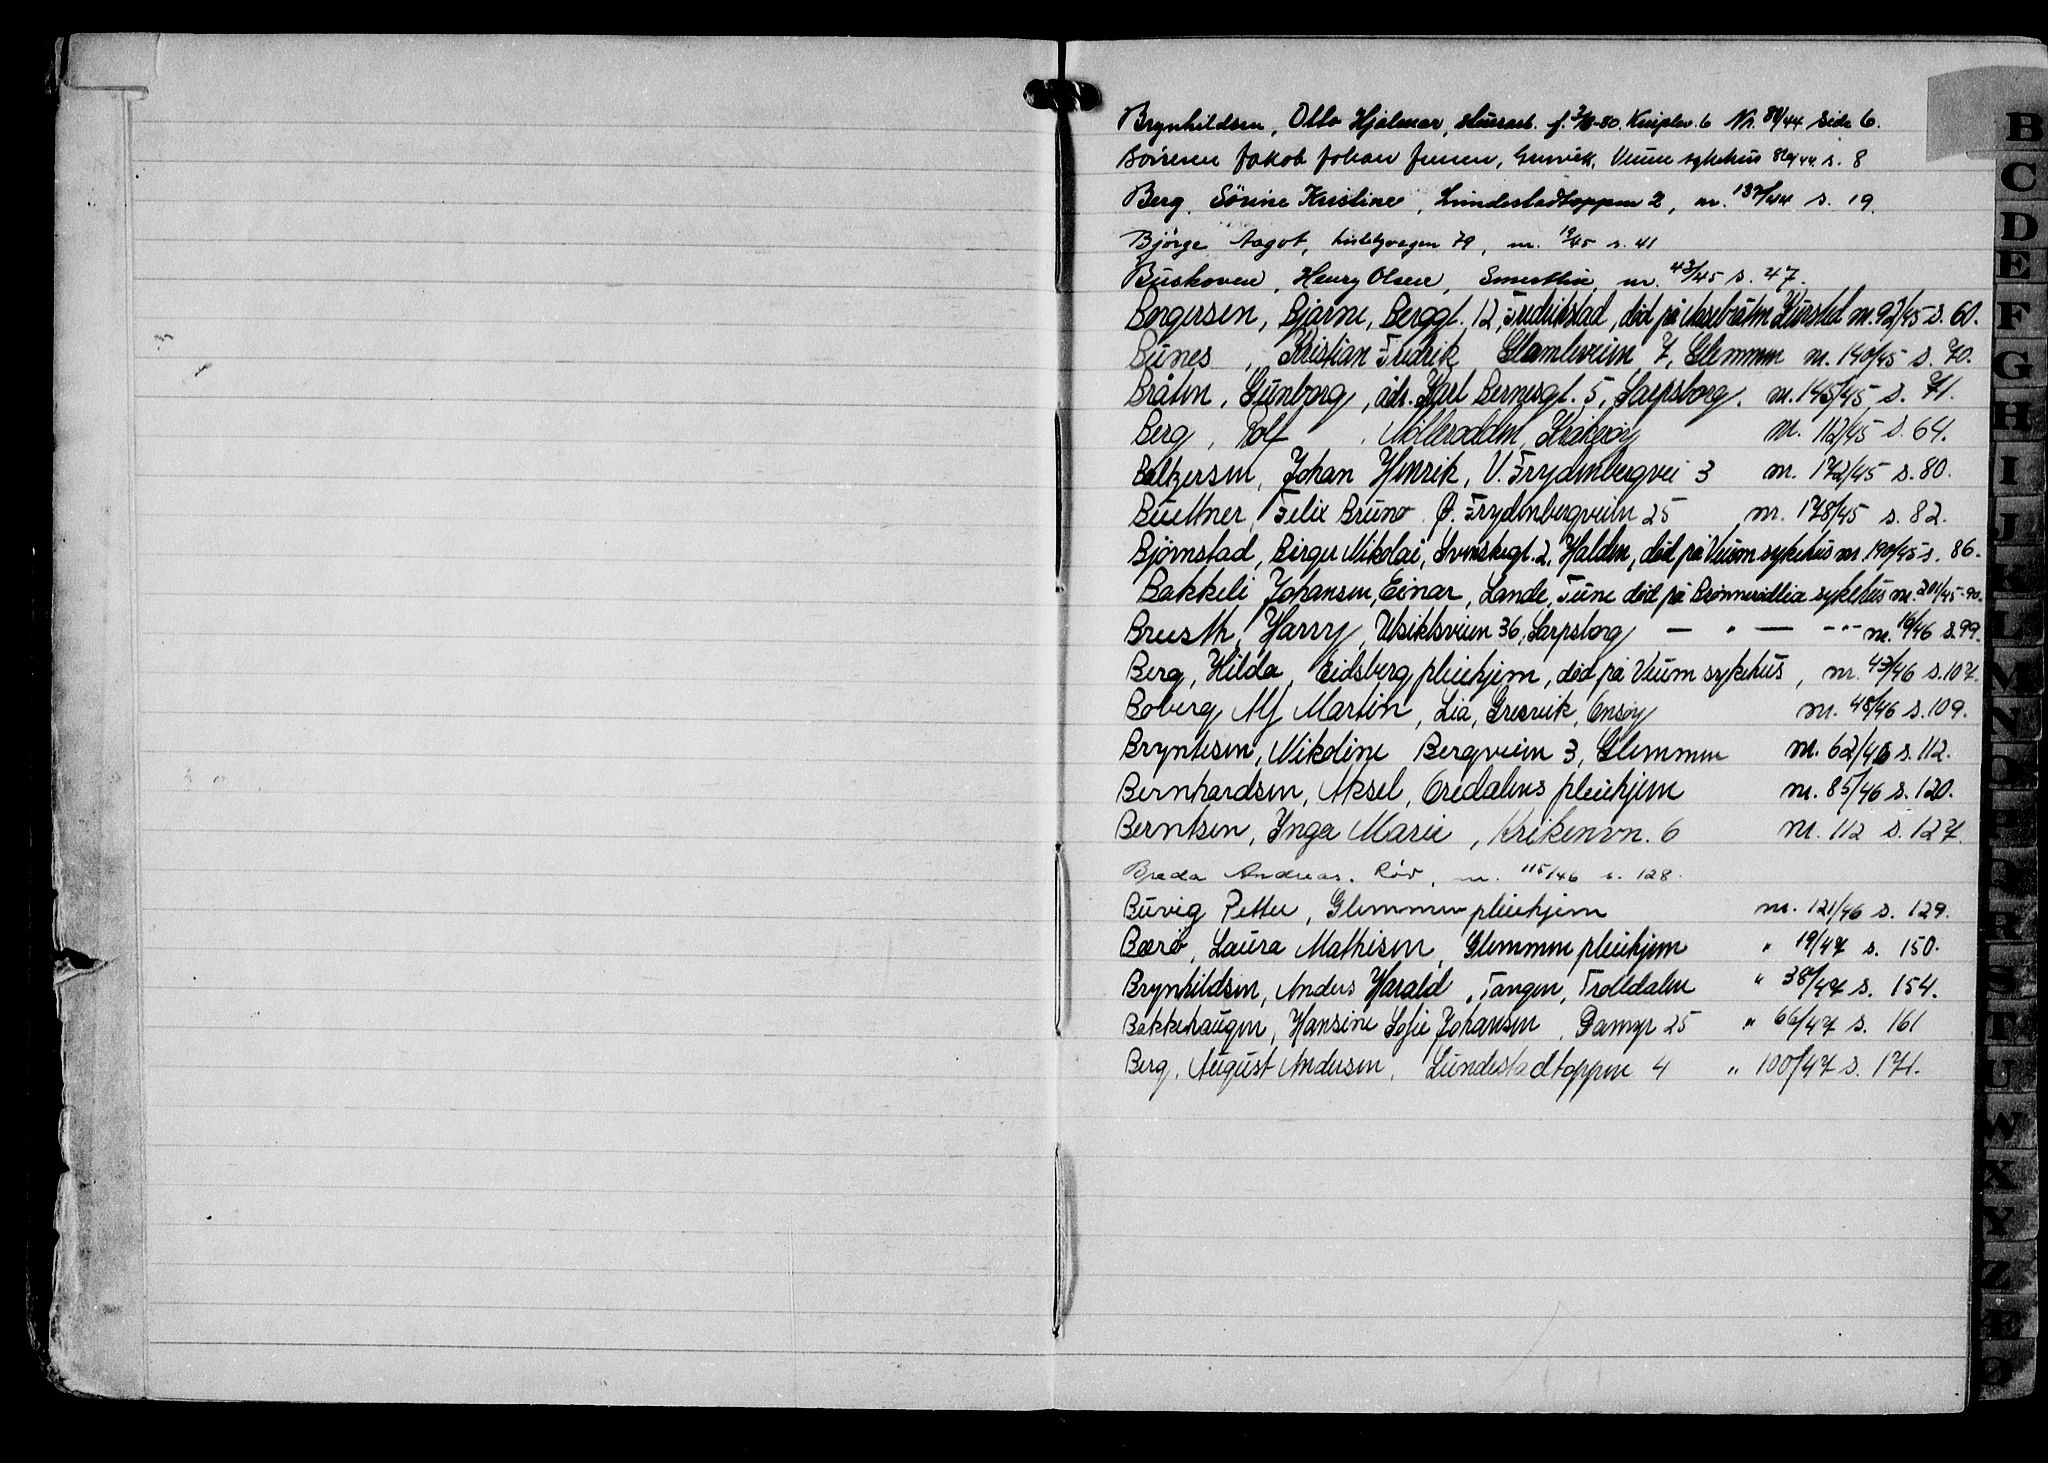 Brynhildsen, Otto Hjalmar, f. Nr. 84/44 Side 6.
Jakob Johan Jensen, Veum sykehus s. 8
Berg, Sørine Kristine, Lundestadtoppen 2, nr. 137/44 s. 19.
Bjørge Aagot, 79, nr. 19/45 s. 41
Buskoven, Henry Olsen, Smertlia, nr. 43/45 s. 47.
Borgersen, Bjarne, Berggt. 12, Fredrikstad, død på nr. 92/45 s. 60.
Bunes, Kristian Fredrik Glomveien 7, Glemmen nr. 140/45 s. 70.
Bråten, Gunborg, adr. Karl Bernersgt. 5, Sarpsborg. nr. 145/45 s. 71.
Berg, Rolf, Møllerodden, Kråkerøy nr. 112/45 s. 64.
Baltzersen, Johan Henrik, V. Frydenbergvei 3 nr. 172/45 s. 80.
Buettner, Felix Bruno. Ø. Frydenbergveien 25 nr. 178/45 s. 82.
Bjørnstad, Birger Nikolai, Svenskegt. 2, Halden, død på Veum sykehus nr. 190/45 s. 86.
Bakkeli Johansen, Einar, Lande, Tune død på sykehus nr. 201/45 - 90.
Brusth, Harry, Utsiktsveien 36, Sarpsborg — " — - " - nr. 16/46 s. 99.
Berg, Hilda, Eidsberg pleiehjem, død på Veum sykehus, nr. 43/46 s. 107.
Boberg Alf Martin, Lia, Gresvik, Onsøy nr. 48/46 s. 109.
Bryntesen, Nikoline Bergveien 3, Glemmen nr. 62/46 s. 112.
Bernhardsen, Aksel, Oredalens pleiehjem nr. 85/46 s. 120.
Berntsen, Inga Marie, Krikenvn. 6 nr. 112 s. 127.
Breda Andreas. Røv, nr. 115/46 s. 128.
Buvig Petter, Glemmen pleiehjem nr. 121/46 s. 129.
Bærø, Laura Mathisen, Glemmen pleiehjem " 19/47 s. 150.
Brynhildsen, Anders Harald, Tangen, Trolldalen " 38/47 s. 154.
Bakkehaugen, Hansine Sofie Johansen, Damyr 25 " 66/47 s. 161
Berg, August Andersen, Lundestadtoppen 4 " 100/47 s. 171.
B
C
D
E
F
G
H
I
J
K
L
M
N
O
P
R
S
T
U
W
X
Y
Z
Æ
Ø